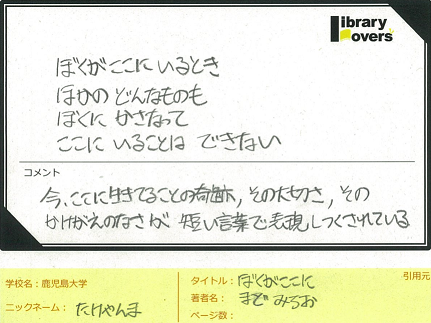 Library Lovers
ぼくがここに いるとき
ほかの どんなものも
ぼくに かさなって
ここに いることは できない
コメント
今、ここに生きてることの奇跡、その大切さ、その
かけがえのなさが 短い言葉で表現しつくされている
引用元
学校名：鹿児島大学
タイトル：ぼくがここに
著者名：まど みちお
ニックネーム：たけやんま
ページ数：